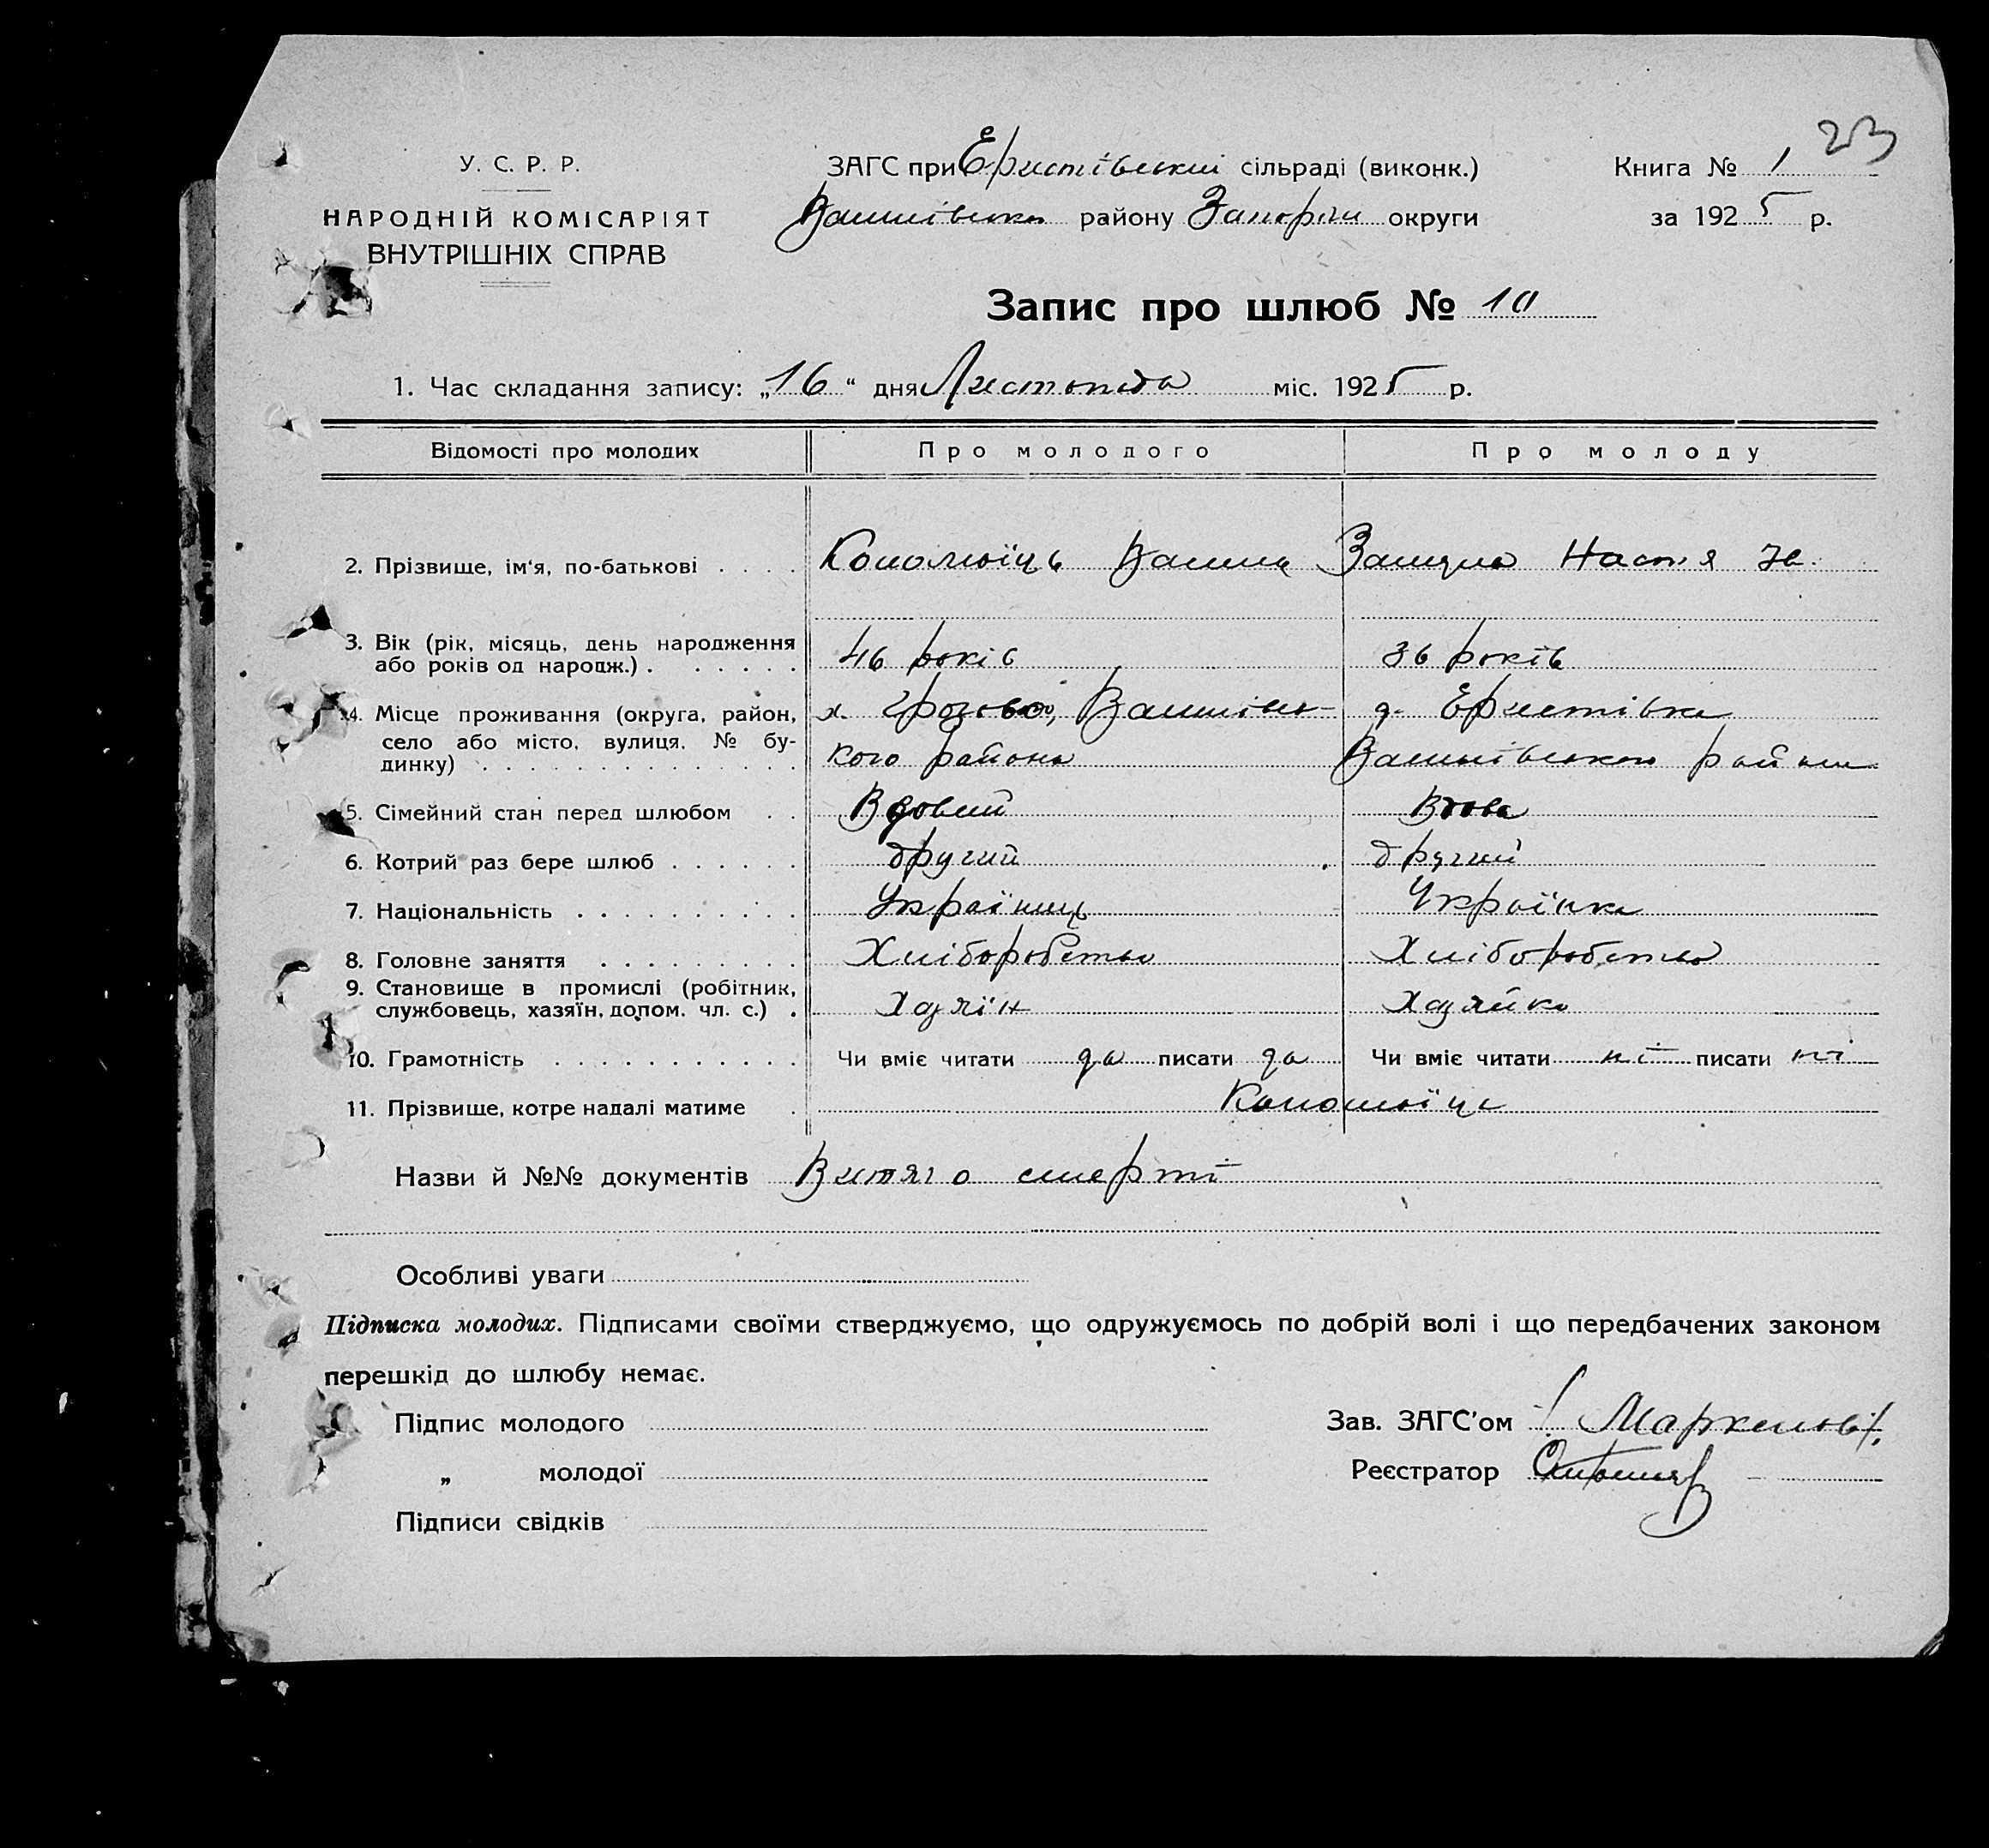 23
У. С. Р. Р.
НАРОДНІЙ КОМІСАРІЯТ
ВНУТРІШНІХ СПРАВ
ЗАГС при Еристівській сільраді (виконк.)
району Запоріж округи
Книга № 1
за 1925 р.
Запис про шлюб № 10
1. Час складання запису: „16“ дня Листопада міс. 1925 р.
Відомості про молодих Про молодого Про молоду
2. Прізвище, ім'я, по-батькові . . . . Коломоїць Настя Ів.
3. Вік (рік, місяць, день народження
або років од народж.) . . . . . . 46 років 36 років
4. Місце проживання (округа, район, х. д. Еристівка
село або місто, вулиця, № бу-
динку) . . . . . . . . . . . . . . кого района
5. Сімейний стан перед шлюбом . . Вдовий Вдова
6. Котрий раз бере шлюб . . . . . . другий другий
7. Національність . . . . . . . . . . Українець Українка
8. Головне заняття . . . . . . . . . Хліборобство Хліборобство
9. Становище в промислі (робітник,
службовець, хазяїн, допом. чл. с.) . Хазяїн Хазяйка
10. Грамотність . . . . . . . . . . . Чи вміє читати да писати да Чи вміє читати ні писати ні
11. Прізвище, котре надалі матиме . Коломоїць
Назви й №№ документів Витяг о смерті
Особливі уваги
Підписка молодих. Підписами своїми стверджуємо, що одружуємось по добрій волі і що передбачених законом
перешкід до шлюбу немає.
Підпис молодого
„ молодої
Підписи свідків
Зав. ЗАГС'ом
Реєстратор